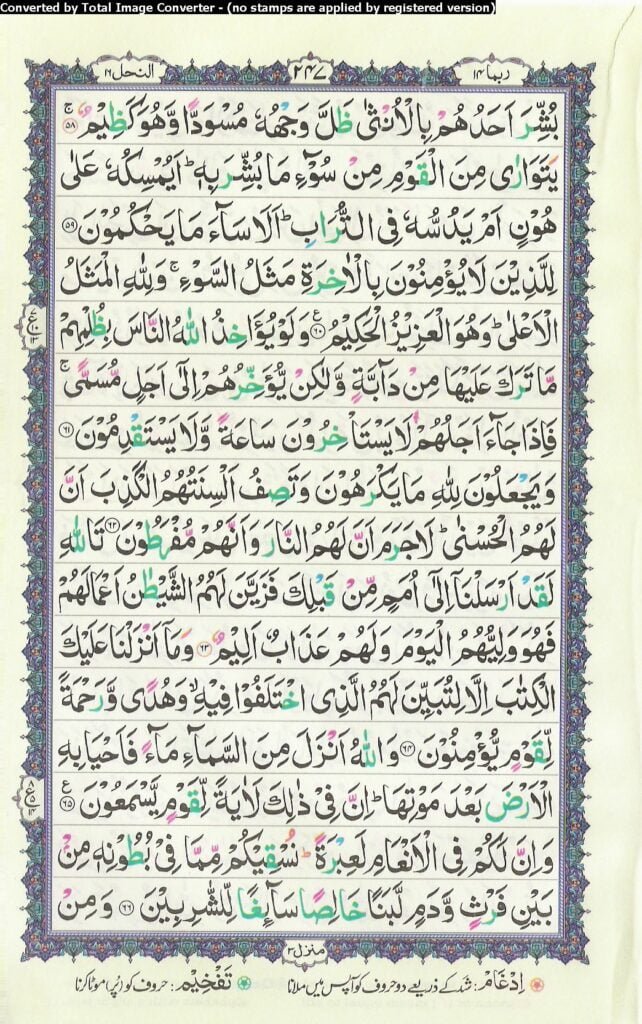 Converted by Total Image Converter - (no stamps are applied by registered version)
ربما ١٤ ٢٤٧ النحل ١٦
بُشِّرَ اَحَدُهُمْ بِالْاُنْثٰى ظَلَّ وَجْهُهٗ مُسْوَدًّا وَّهُوَ كَظِيْمٌ ۚ ٥٨
يَتَوَارٰى مِنَ الْقَوْمِ مِنْ سُوْٓءِ مَا بُشِّرَ بِهٖ ؕ اَيُمْسِكُهٗ عَلٰى
هُوْنٍ اَمْ يَدُسُّهٗ فِى التُّرَابِ ؕ اَلَا سَآءَ مَا يَحْكُمُوْنَ ٥٩
لِلَّذِيْنَ لَا يُؤْمِنُوْنَ بِالْاٰخِرَةِ مَثَلُ السَّوْءِ ۚ وَلِلّٰهِ الْمَثَلُ
الْاَعْلٰى ؕ وَهُوَ الْعَزِيْزُ الْحَكِيْمُ ٦٠ ع وَلَوْ يُؤَاخِذُ اللّٰهُ النَّاسَ بِظُلْمِهِمْ
مَّا تَرَكَ عَلَيْهَا مِنْ دَآبَّةٍ وَّلٰكِنْ يُّؤَخِّرُهُمْ اِلٰٓى اَجَلٍ مُّسَمًّى ۚ
فَاِذَا جَآءَ اَجَلُهُمْ لَا يَسْتَاْخِرُوْنَ سَاعَةً وَّلَا يَسْتَقْدِمُوْنَ ٦١
وَيَجْعَلُوْنَ لِلّٰهِ مَا يَكْرَهُوْنَ وَتَصِفُ اَلْسِنَتُهُمُ الْكَذِبَ اَنَّ
لَهُمُ الْحُسْنٰى ؕ لَا جَرَمَ اَنَّ لَهُمُ النَّارَ وَاَنَّهُمْ مُّفْرَطُوْنَ ٦٢ تَاللّٰهِ
لَقَدْ اَرْسَلْنَاۤ اِلٰٓى اُمَمٍ مِّنْ قَبْلِكَ فَزَيَّنَ لَهُمُ الشَّيْطٰنُ اَعْمَالَهُمْ
فَهُوَ وَلِيُّهُمُ الْيَوْمَ وَلَهُمْ عَذَابٌ اَلِيْمٌ ٦٣ وَمَاۤ اَنْزَلْنَا عَلَيْكَ
الْكِتٰبَ اِلَّا لِتُبَيِّنَ لَهُمُ الَّذِى اخْتَلَفُوْا فِيْهِ ۙ وَهُدًى وَّرَحْمَةً
لِّقَوْمٍ يُّؤْمِنُوْنَ ٦٤ وَاللّٰهُ اَنْزَلَ مِنَ السَّمَآءِ مَآءً فَاَحْيَا بِهِ
الْاَرْضَ بَعْدَ مَوْتِهَا ؕ اِنَّ فِىْ ذٰلِكَ لَاٰيَةً لِّقَوْمٍ يَّسْمَعُوْنَ ٦٥ ع
وَاِنَّ لَكُمْ فِى الْاَنْعَامِ لَعِبْرَةً ؕ نُسْقِيْكُمْ مِّمَّا فِىْ بُطُوْنِهٖ مِنْۢ
بَيْنِ فَرْثٍ وَّدَمٍ لَّبَنًا خَالِصًا سَآئِغًا لِّلشّٰرِبِيْنَ ٦٦ وَمِنْ
منزل ٣
اِدْغَام: شد کے ذریعے دو حروف کو آپس میں ملانا تَفْخِيْم: حروف کو (پُر) موٹا کرنا